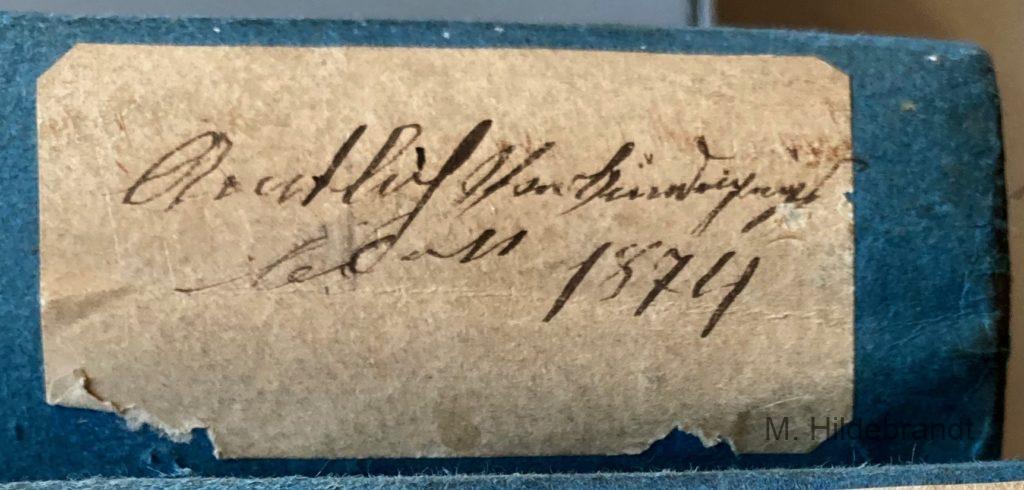 Amtlich Verkündigungs
blatt 1874
M. Hildebrandt